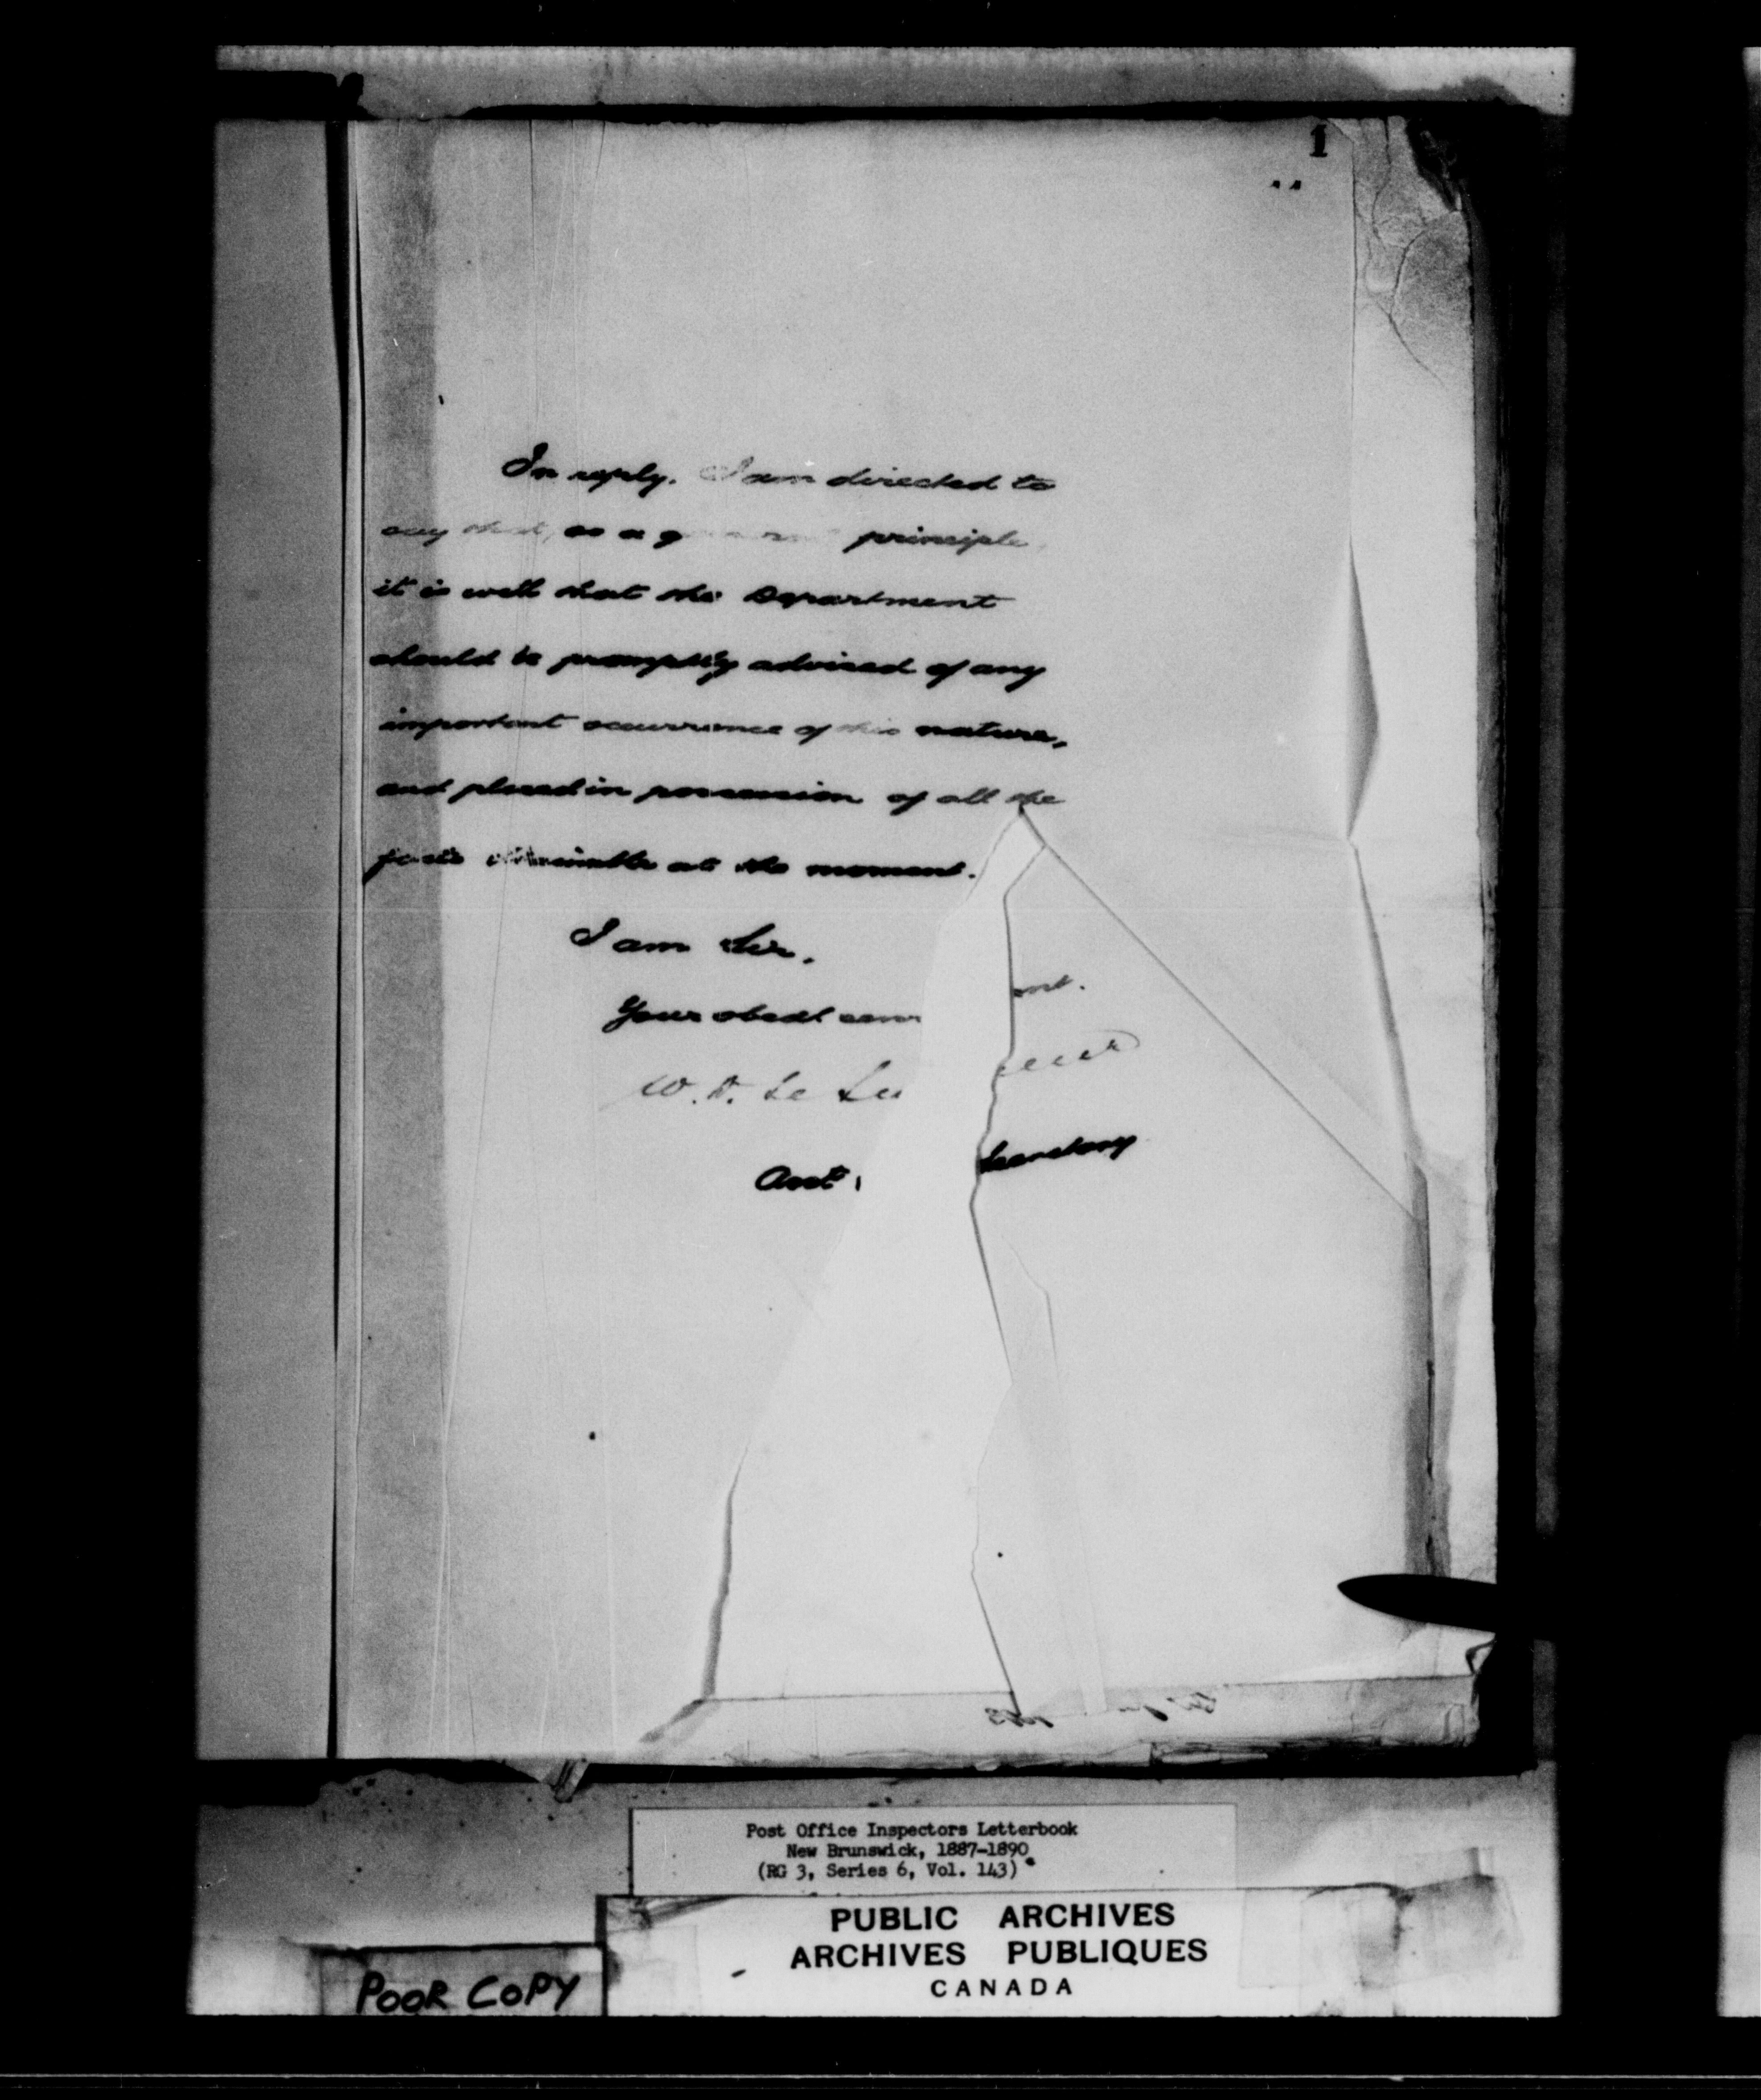 1
In reply, I am directed to
say that, as a general principle,
it is well that the Department
should be promptly advised of any
important occurrence of this nature,
and placed in possession of all the
facts attainable at the moment.
I am Sir,
Your obedt servant.
W. D. Le Sueur
Asst. Secretary
Post Office Inspectors Letterbook
New Brunswick, 1887-1890
(RG 3, Series 6, Vol. 143)
PUBLIC ARCHIVES
ARCHIVES PUBLIQUES
CANADA
POOR COPY